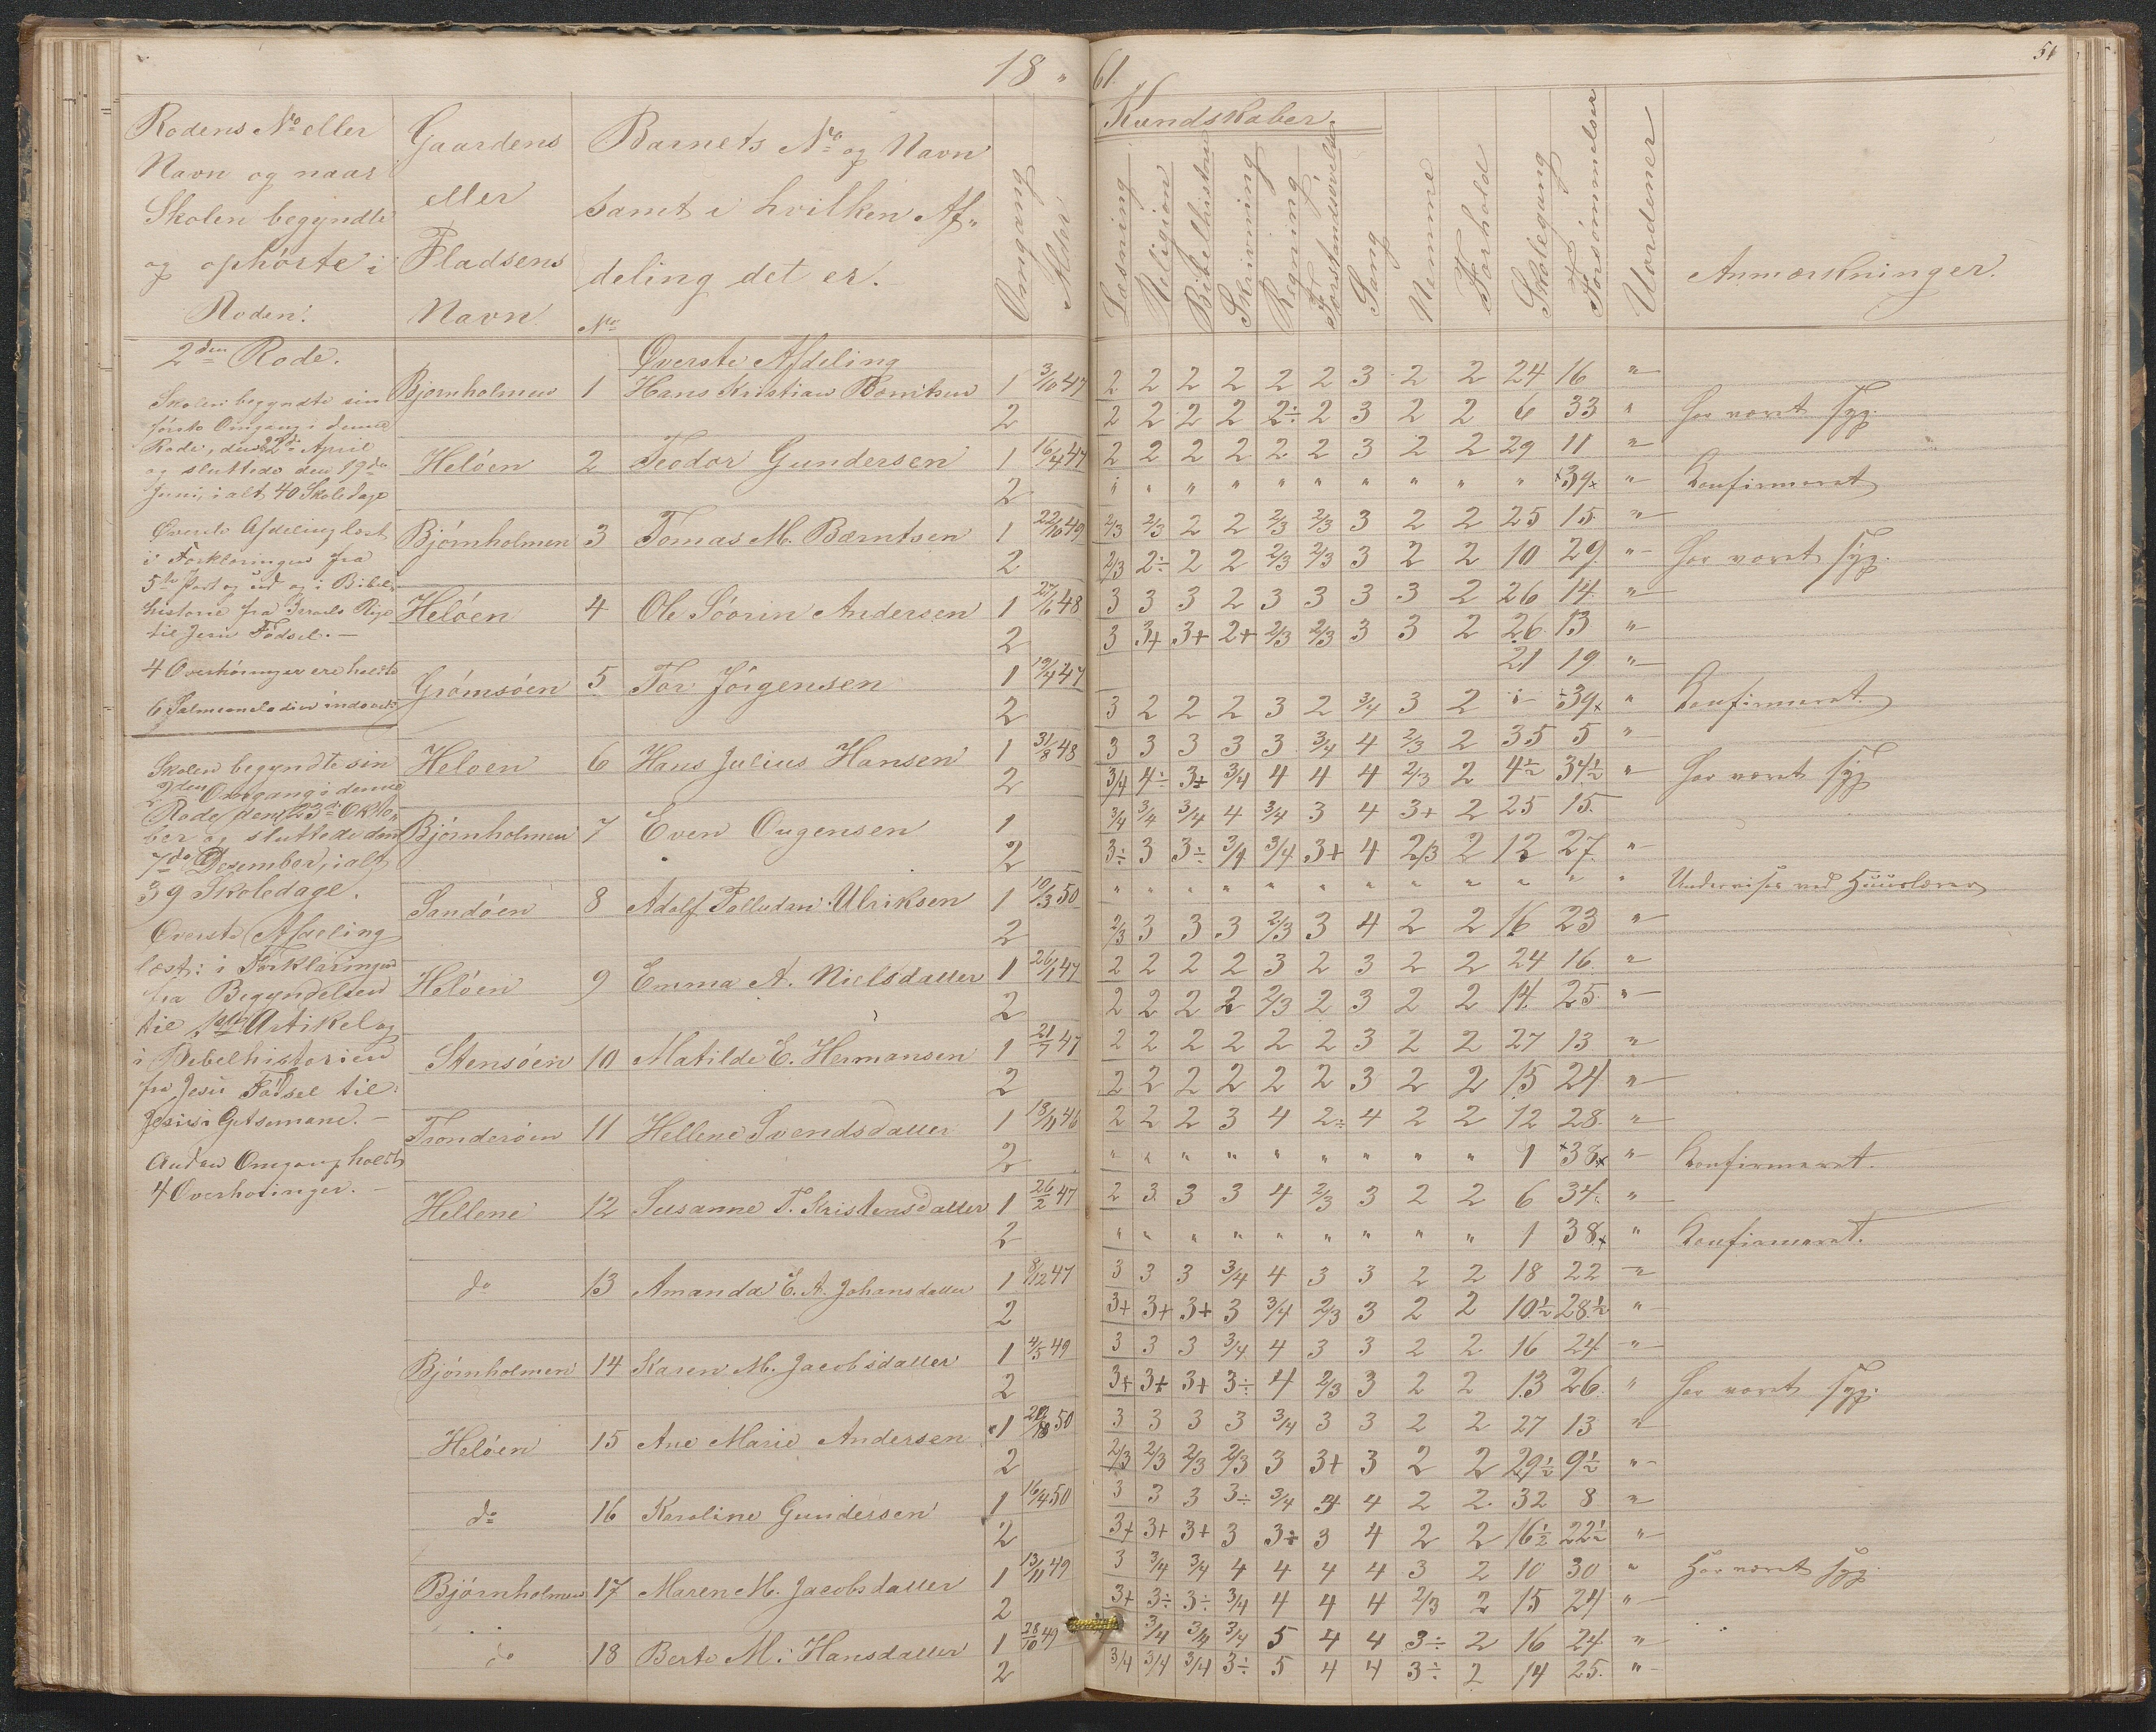 18 " 61.
51
Rodens No eller
Navn og naar
Skolen begyndte
og ophørte i
Roden.
Gaardens
eller
Pladsens
Navn
Barnets No og Navn
samt i hvilken Af-
deling det er.
No
Omgang
Alder
Kundskaber.
Læsning
Religion
Bibelhistorie
Skrivning
Regning
Forstandsøvelse
Sang
Nemme
Forhold
Skolegang
Forsømmelser
Uordener
Anmærkninger.
2den Rode.
Skolen begyndte sin
første Omgang i denne
Rode, den 22de April
og sluttede den 19de
Juni, i alt 40 Skoledage
Øverste Afdeling læst
i Forklaringen fra
5te Part og ud og i Bibel-
historie fra Israels Rige
til Jesu Fødsel. —
4 Overhøringer ere holdte
6 Salmemelodier indøvet.
Skolen begyndte sin
2den Omgang i denne
Rode den 23de Okto-
ber og sluttede den
7de Desember, i alt
39 Skoledage.
Øverste Afdeling
læst: i Forklaringen
fra Begyndelsen
til Artikel og
i Bibelhistorien
fra Jesu Fødsel til:
Jesus i Getsemane. —
Anden Omgang holdt
4 Overhøringer. —
Øverste Afdeling
Bjørnholmen 1 Hans Kristian Berntsen 1 3/10 47 2 2 2 2 2 2 3 2 2 24 16 "
2 2 2 2 2 2÷ 2 3 2 2 6 33 " har været syg.
Heløen 2 Teodor Gundersen 1 16/4 47 2 2 2 2 2 2 3 2 2 29 11 "
2 " " " " " " " " " " +39+ " Konfirmeret
Bjørnholmen 3 Tomas M. Bærntsen 1 22/10 49 2/3 2/3 2 2 2/3 2/3 3 2 2 25 15 "
2 2/3 2÷ 2 2 2/3 2/3 3 2 2 10 29 " har været syg.
Heløen 4 Ole Søorin Andersen 1 27/6 48 3 3 3 2 3 3 3 3 2 26 14 "
2 3 3+ 3+ 2+ 2/3 2/3 3 3 2 26 13 "
Grømsøen 5 Tor Jørgensen 1 19/4 47 21 19 "
2 3 2 2 2 3 2 3/4 3 2 " 39+ " Konfirmeret.
Heloen 6 Hans Julius Hansen 1 31/8 48 3 3 3 3 3 3/4 4 2/3 2 35 5 "
2 3/4 4÷ 3÷ 3/4 4 4 4 2/3 2 4½ 34½ " har været syg
Bjørnholmen 7 Even Ougensen 1 3/4 3/4 3/4 4 3/4 3 4 3+ 2 25 15
2 3÷ 3 3÷ 3/4 3/4 3+ 4 2/3 2 12 27 "
Sandøen 8 Adolf Palludan Ulriksen 1 10/3 50 " " " " " " " " " " " " Undervises ved Huuslærer
2 2/3 3 3 3 2/3 3 4 2 2 16 23 "
Heløen 9 Emma A. Nielsdatter 1 26/1 47 2 2 2 2 3 2 3 2 2 24 16 "
2 2 2 2 2 2/3 2 3 2 2 14 25 "
Stensøen 10 Matilde E. Hermansen 1 21/7 47 2 2 2 2 2 2 3 2 2 27 13 "
2 2 2 2 2 2 2 3 2 2 15 24 "
Tronderøen 11 Hellene Svendsdatter 1 18/11 46 2 2 2 3 4 2÷ 4 2 2 12 28 "
2 " " " " " " " " " 1 +38+ " Konfirmeret.
Hellene 12 Susanne T. Kristensdatter 1 26/2 47 2 3 3 3 4 2/3 3 2 2 6 34 "
2 " " " " " " " " " 1 38+ " Konfirmeret.
do 13 Amanda E. A. Johansdatter 1 8/12 47 3 3 3 3/4 4 3 3 2 2 18 22 "
2 3+ 3+ 3+ 3 3/4 2/3 3 2 2 10½ 28½ "
Bjørnholmen 14 Karen M. Jacobsdatter 1 4/5 49 3 3 3 3/4 4 3 3 2 2 16 24 "
2 3+ 3+ 3+ 3÷ 4 2/3 3 2 2 13 26 " har været syg.
Heløen 15 Ane Marie Andersen 1 50 3 3 3 3 3/4 3 3 2 2 27 13 "
2 2/3 2/3 2/3 2/3 3 3+ 3 2 2 29½ 9½ "
do 16 Karoline Gundersen 1 16/4 50 3 3 3 3÷ 3/4 3 4 2 2 32 8 "
2 3+ 3+ 3+ 3 3÷ 3 4 2 2 16½ 22½ "
Bjørnholmen 17 Maren M. Jacobsdatter 1 13/11 49 3 3/4 3/4 4 4 4 4 3 2 10 30 " Har været syg.
2 3+ 3÷ 3÷ 3/4 4 4 4 2/3 2 15 24 "
do 18 Berte M. Hansdatter 1 28/10 49 3/4 3/4 3/4 5 4 4 3÷ 2 16 24 "
2 3/4 3/4 3/4 3÷ 5 4 4 3÷ 2 14 25 "